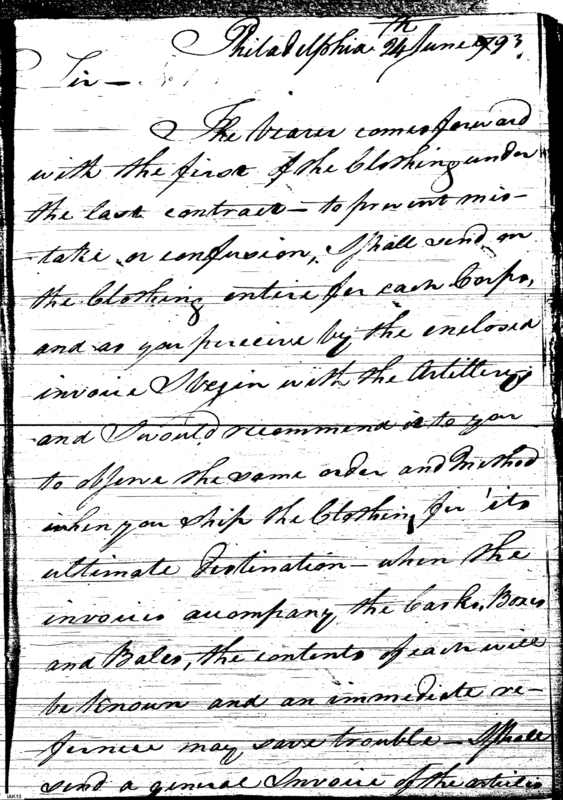 Philadelphia 24th June 1793.
Sir —
The bearer comes forward
with the first of the Clothing under
the last contract — to prevent mis-
take or confusion, I shall send on
the Clothing entire for each Corps,
and as you perceive by the enclosed
invoice I begin with the Artillery
and I would recommend it to you
to observe the same order and Method
when you ship the Clothing for its
ultimate Destination — when the
invoices accompany the Casks, Boxes
and Bales, the contents of each will
be known and an immediate re-
ference may save trouble — I shall
send a general Invoice of the articles
IAK13